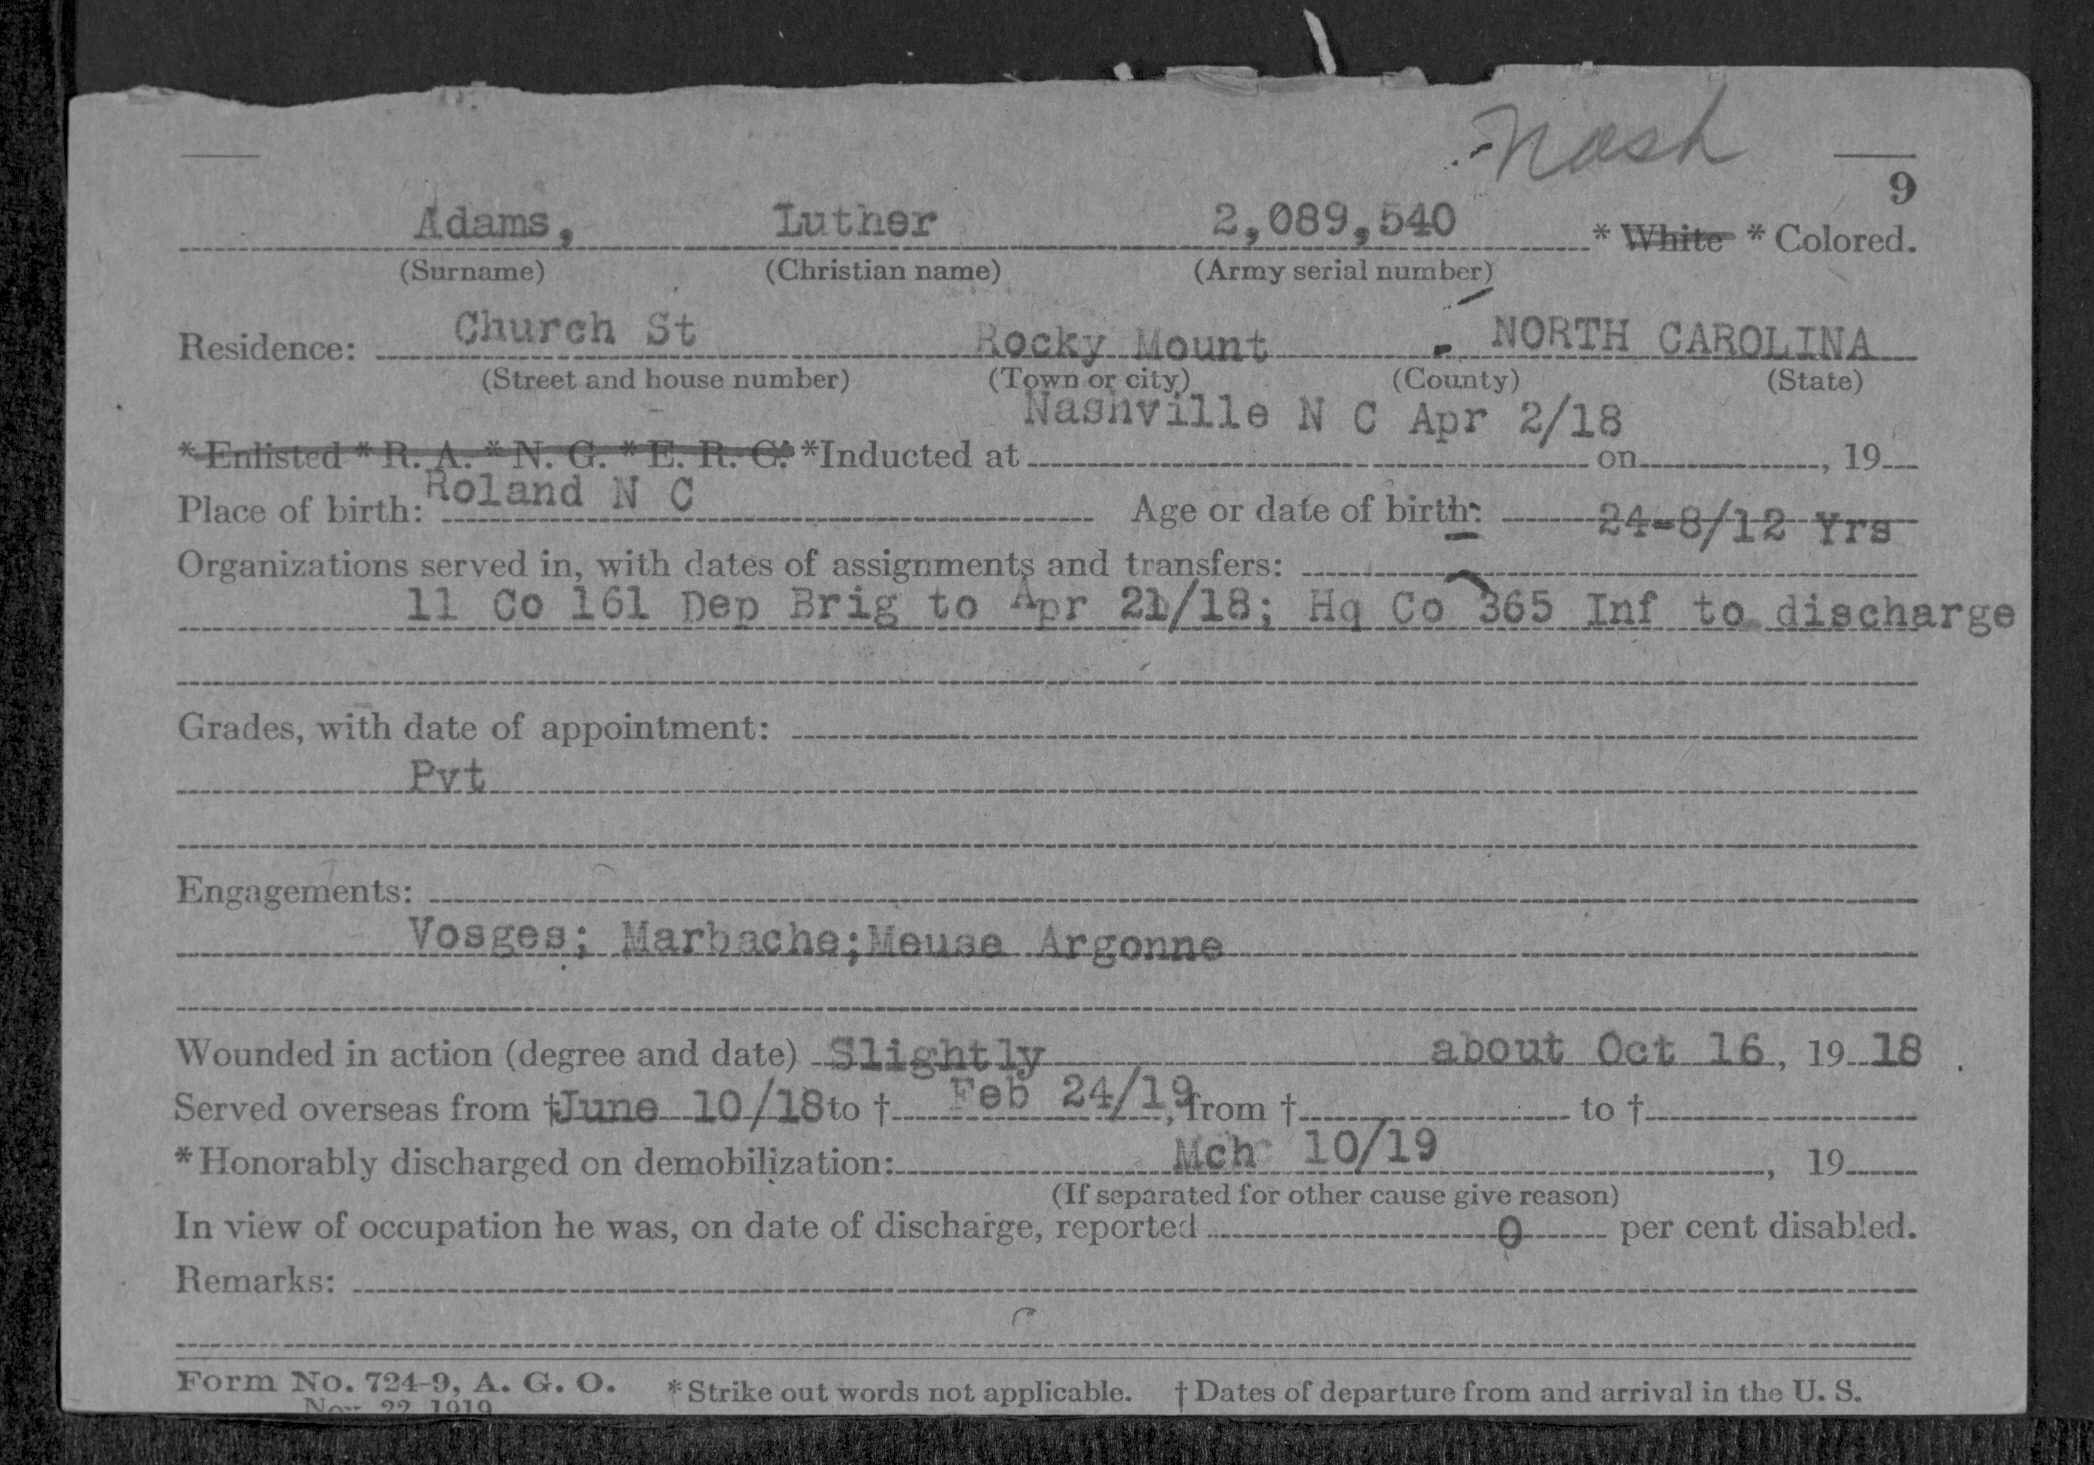 Nash
9
Adams, Luther 2,089,540 * White * Colored.
(Surname) (Christian name) (Army serial number)
Residence: Church St Rocky Mount NORTH CAROLINA
(Street and house number) (Town or city) (County) (State)
Nashville N C Apr 2/18
* Enlisted * R. A. * N. G. * E. R. C. * Inducted at on , 19
Place of birth: Roland N C Age or date of birth: 24-8/12 Yrs
Organizations served in, with dates of assignments and transfers:
11 Co 161 Dep Brig to Apr 21/18; Hq Co 365 Inf to discharge
Grades, with date of appointment:
Pvt
Engagements:
Vosges; Marbache;Meuse Argonne
Wounded in action (degree and date) Slightly about Oct 16, 19 18
Served overseas from † June 10/18 to † Feb 24/19, from † to †
* Honorably discharged on demobilization: Mch 10/19 , 19
(If separated for other cause give reason)
In view of occupation he was, on date of discharge, reported 0 per cent disabled.
Remarks:
Form No. 724-9, A. G. O. * Strike out words not applicable. † Dates of departure from and arrival in the U. S.
Nov. 22 1919